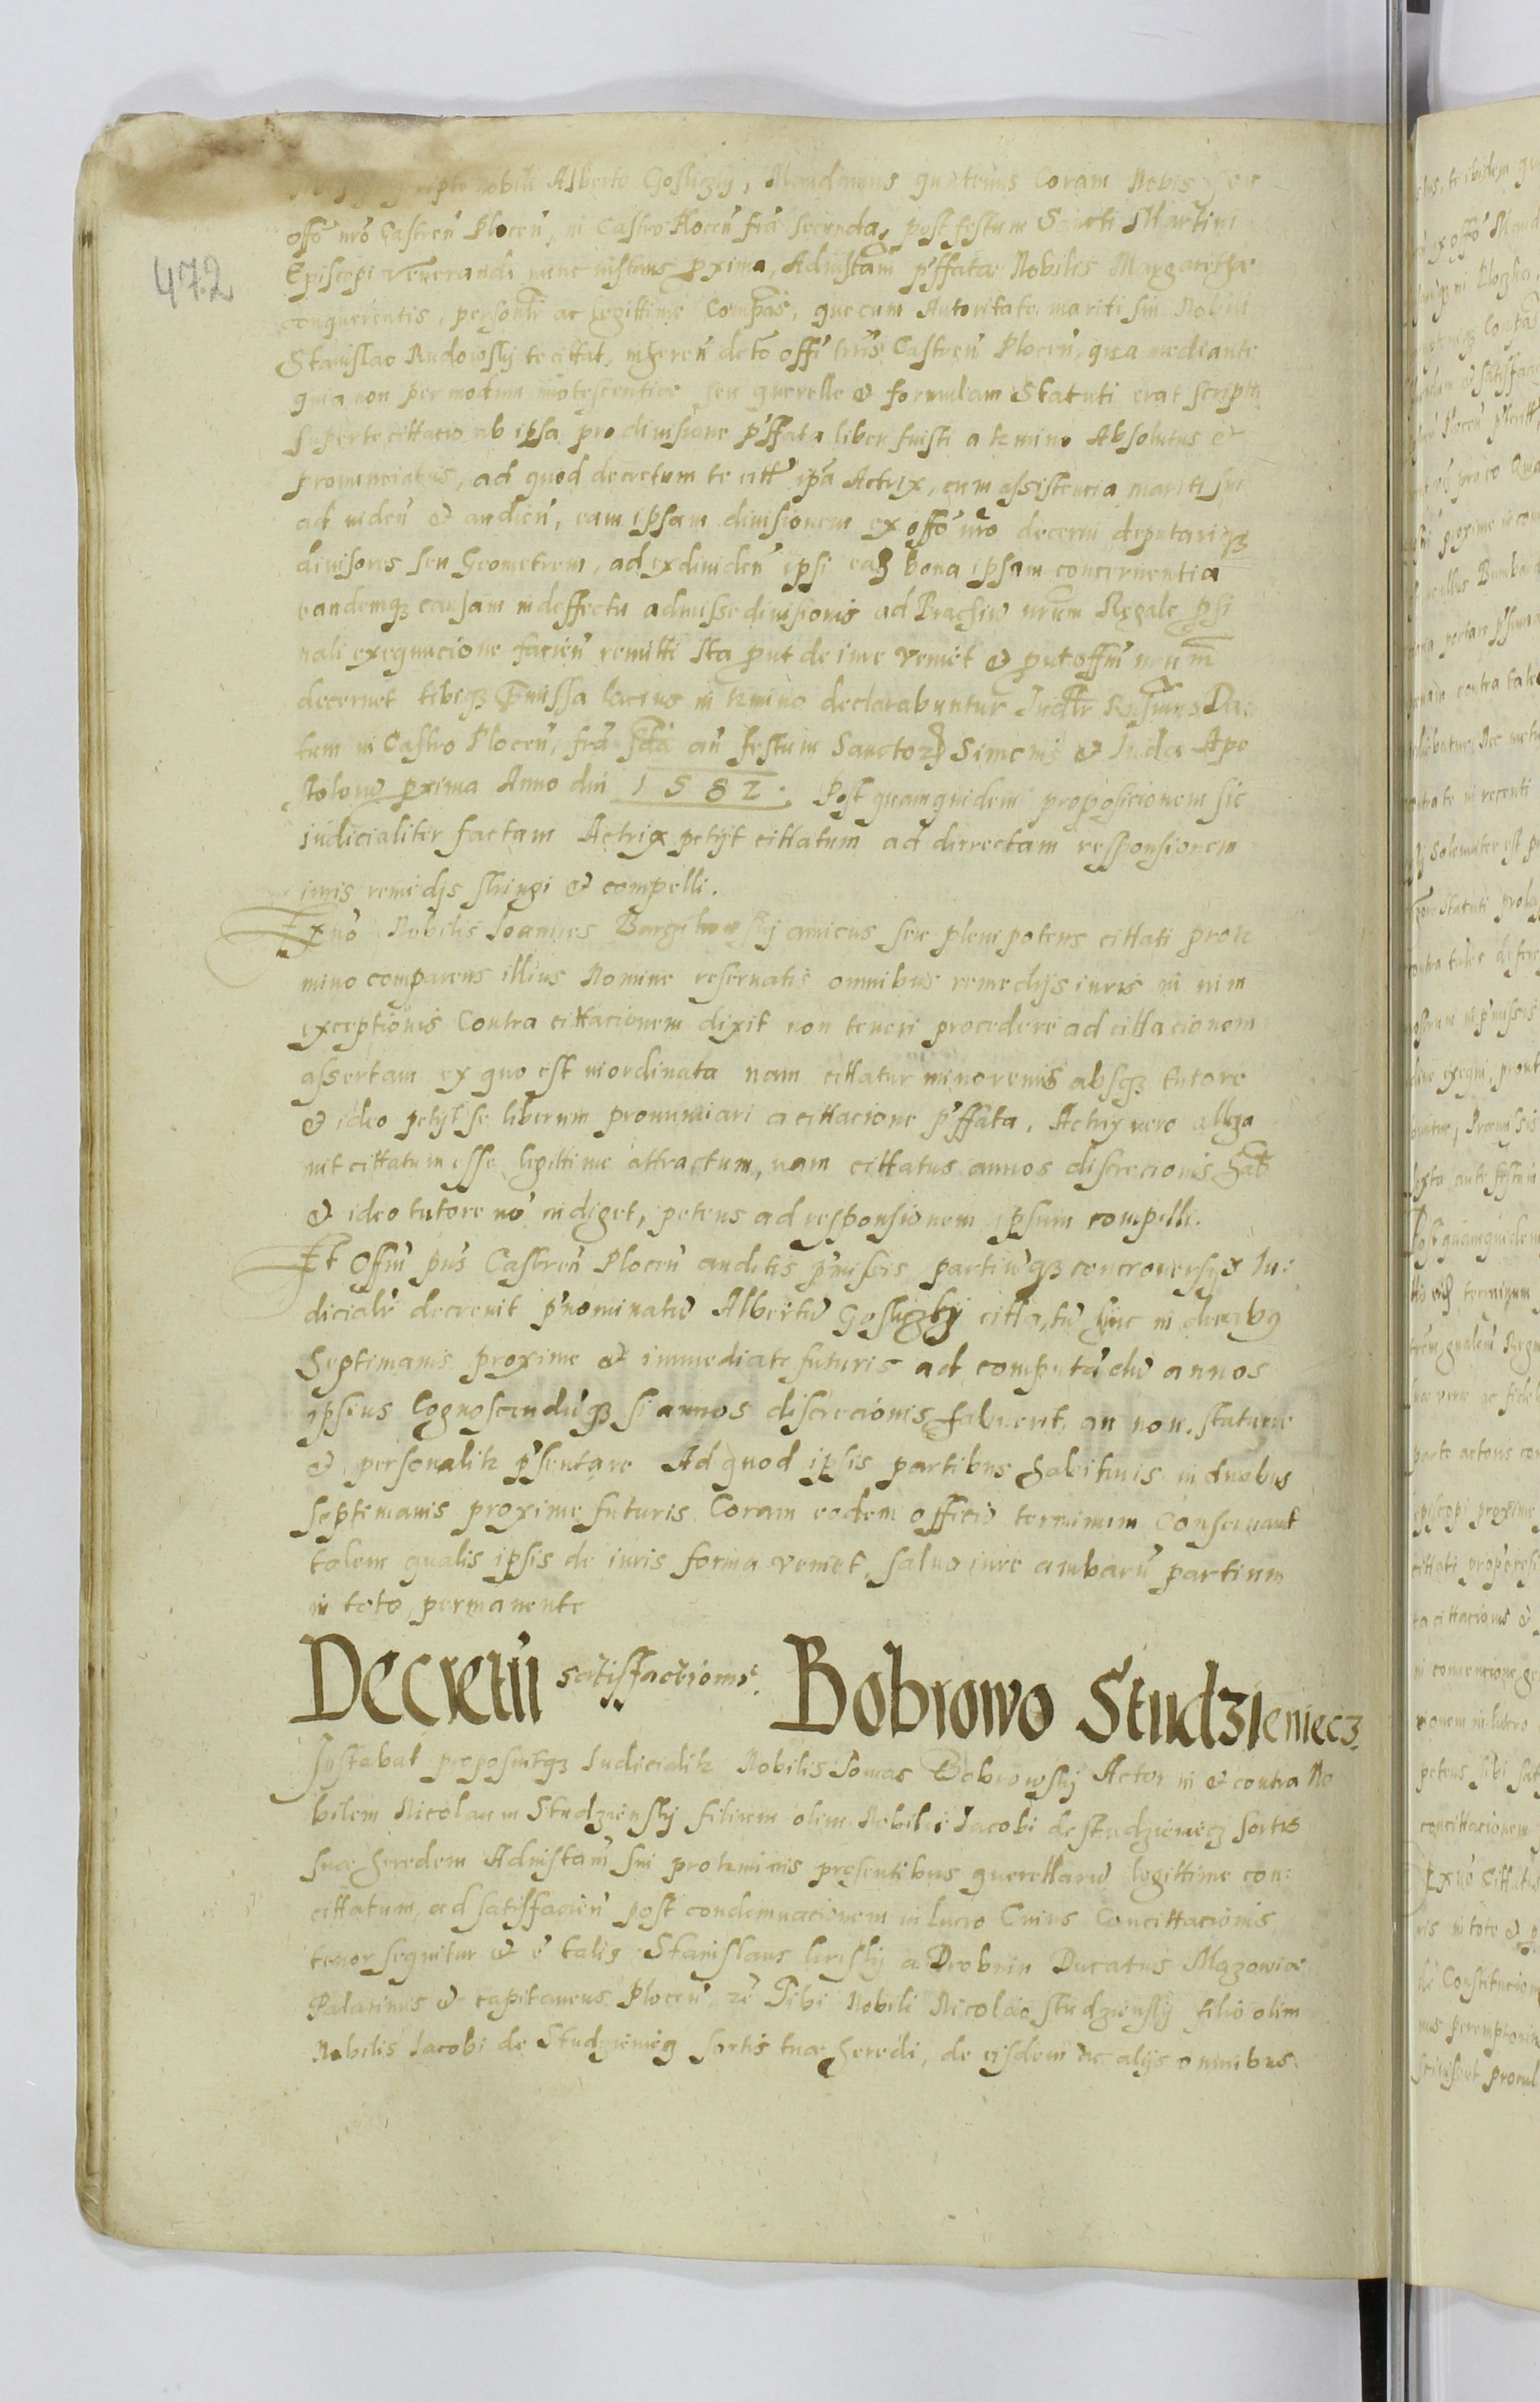 472
nobili Alberto Goslizky, Mandamus quatenus Coram Nobis seu
offō nrō Castren̄ Plocen̄, in Castro Plocen̄ fra secunda, post festum Sancti Martini
Episcopi venerandi nunc instans pxima, Adinstam p'ffatæ Nobilis Margarithæ
conquerentis, personlr ac legittime Compas, que cum Autoritate mariti sui Nobili
Stanislao Rudowsky te cittat, inheren̄ deto offi nris Castren̄ Plocen̄, qua mediante
quia non per modum inotescentiæ seu querelle & formulam Statuti erat scripta
super te cittacio ab ipsa pro divisione p'ffata liber fuisti a tzmino Absolutus &
pronunciatus, ad quod decretum te citt' ipa Actrix, cum assistencia mariti sui
ad viden̄ & audien̄, eam ipsam divisionem ex offo nro decerni deputarizz
divisores seu Geometrem, ad exdividen̄ ipsi eaz bona ipsam concernentia
eandemqz causam in deffectu admisse divisionis ad Brachiū nrum Regale psi
nali exequucione facien̄ remitti Ita put de iure veniet & put offm nrum
decernet tibiqz pmissa lacius in tzmino declarabuntur Iudlr Rusurus Da:
tum in Castro Plocen̄, fra sda an̄ festum Sanctoz Simonis & Iudæ Apo
stolorū pxima Anno dni 1582. Post quamquidem proposicionem sic
iudicialiter factam Actrix petijt cittatum ad dirrectam responsionem
iuris remedijs stringi & compelli.
Exnō Nobilis Ioannes amicus seu plenipotens cittati protz
mino comparens illius Nomine reservatis omnibus remedijs iuris in vim
exceptionis Contra cittacionem dixit non teneri procedere ad cittacionem
assertam ex quo est inordinata nam cittatur minorennis absqz tutore
& ideo petijt se liberum pronunciari a cittacione p'ffata, Actrix vero allega
uit cittatum esse legittime attractum, nam cittatus annos discrecionis hab
& ideo tutore nō indiget, petens ad responsionem ipsum compelli.
Et Offm pns Castren̄ Plocen̄ auditis p'missis partiūqz controversijs Iu:
dicialr decrevit p'nominatū Albertū Goslizky cittatū hinc in duabg
Septimanis proxime & immediate futuris ad computādū annos
ipsius Cognoscendūqz si annos discrecionis habuerit, an non. statuere
& personalitz p'sentare Ad quod ipsis partibus habituris in duobus
septimanis proxime futuris Coram eodem officio terminum Conservant
talem qualis ipsis de iuris forma veniet, salvo iure ambarū partium
in toto permanente
Decretū satisfactionis. Bobrowo Studzieniecz.
Instabat proposuitqz Iudicialitz Nobilis Tomas Bobrowsky Actor in & contra No
bilem Nicolaum Studziensky filium olim Nobilis Iacobi de Studzieniecz sortis
suæ heredem Adinstam sui pro tzminis presentibus querellarū legittime con:
cittatum, ad satisfacien̄ post condemnacionem in lucro Cuius Concittacionis
tenor sequitur & ē talis Stanislaus krisky a Drobnin Ducatus Mazowiæ
Palatinus & capitaneus Plocen̄ zē Tibi Nobili Nicolao studziensky filio olim
Nobilis Iacobi de Studzieniecz sortis tuæ heredi, de eisdem ac alijs omnibus